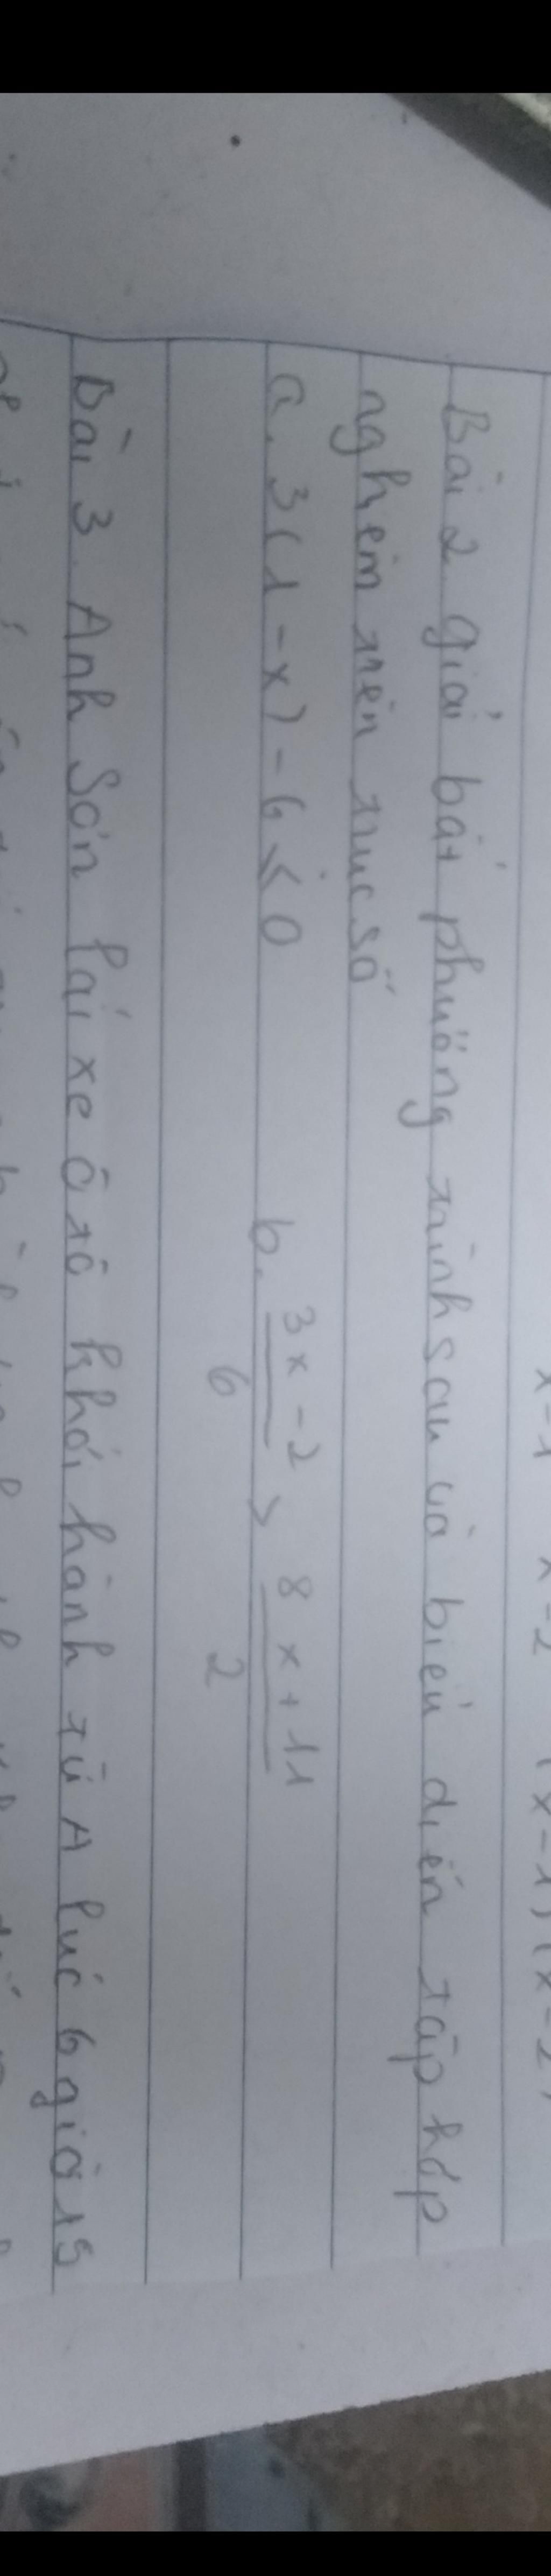 x-1 x-2 (x-1)(x-2)
Bài 2 giải bất phương trình sau và biểu diễn tập hợp
nghiệm trên trục số
a. 3(1-x)-6<0 b. \frac{3x-2}{6} > \frac{8x+11}{2}
Bài 3. Anh Sơn lái xe ô tô khởi hành từ A lúc 6 giờ 15